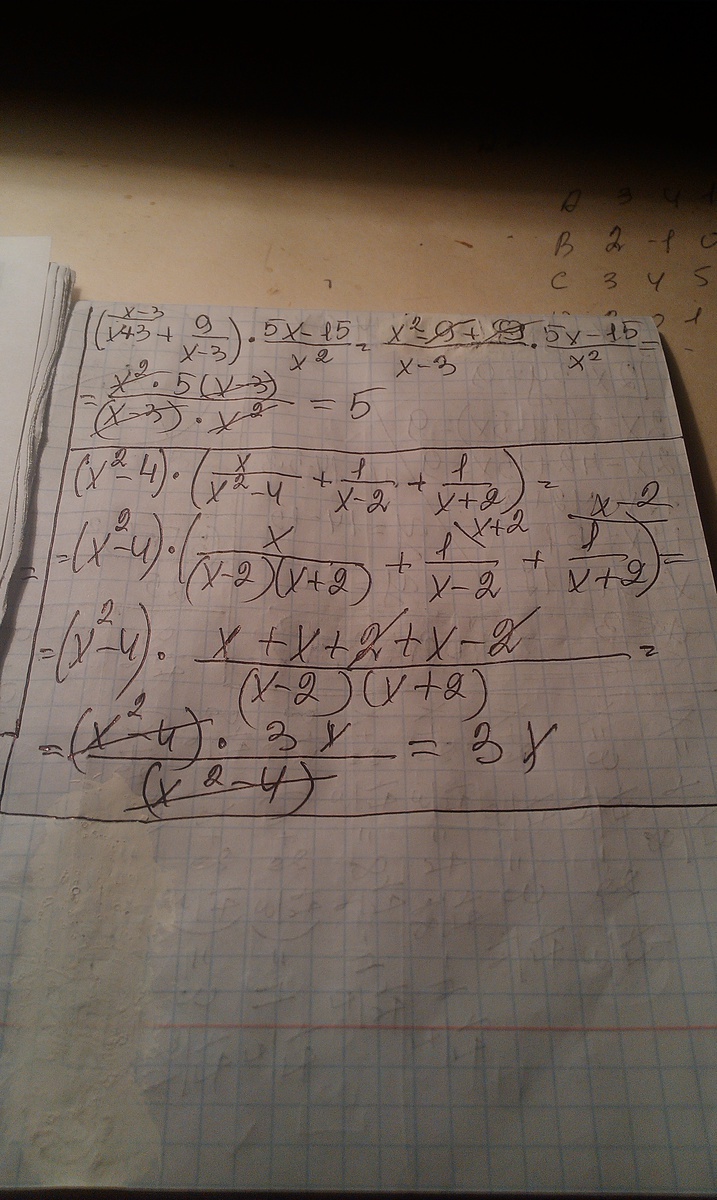 A 3 4
B 2 -1 0
C 3 4 5
1
(x+3 ^{x-3} + 9/(x-3)) · (5x-15)/x² = (x²-9+9)/(x-3) · (5x-15)/x² =
= (x² · 5(x-3))/((x-3) · x²) = 5
(x²-4) · (x/(x²-4) + 1/(x-2) + 1/(x+2)) =
= (x²-4) · (x/((x-2)(x+2)) + 1/(x-2) ^{x+2} + 1/(x+2) ^{x-2}) =
= (x²-4) · (x+x+2+x-2)/((x-2)(x+2)) =
= ((x²-4) · 3x)/(x²-4) = 3x